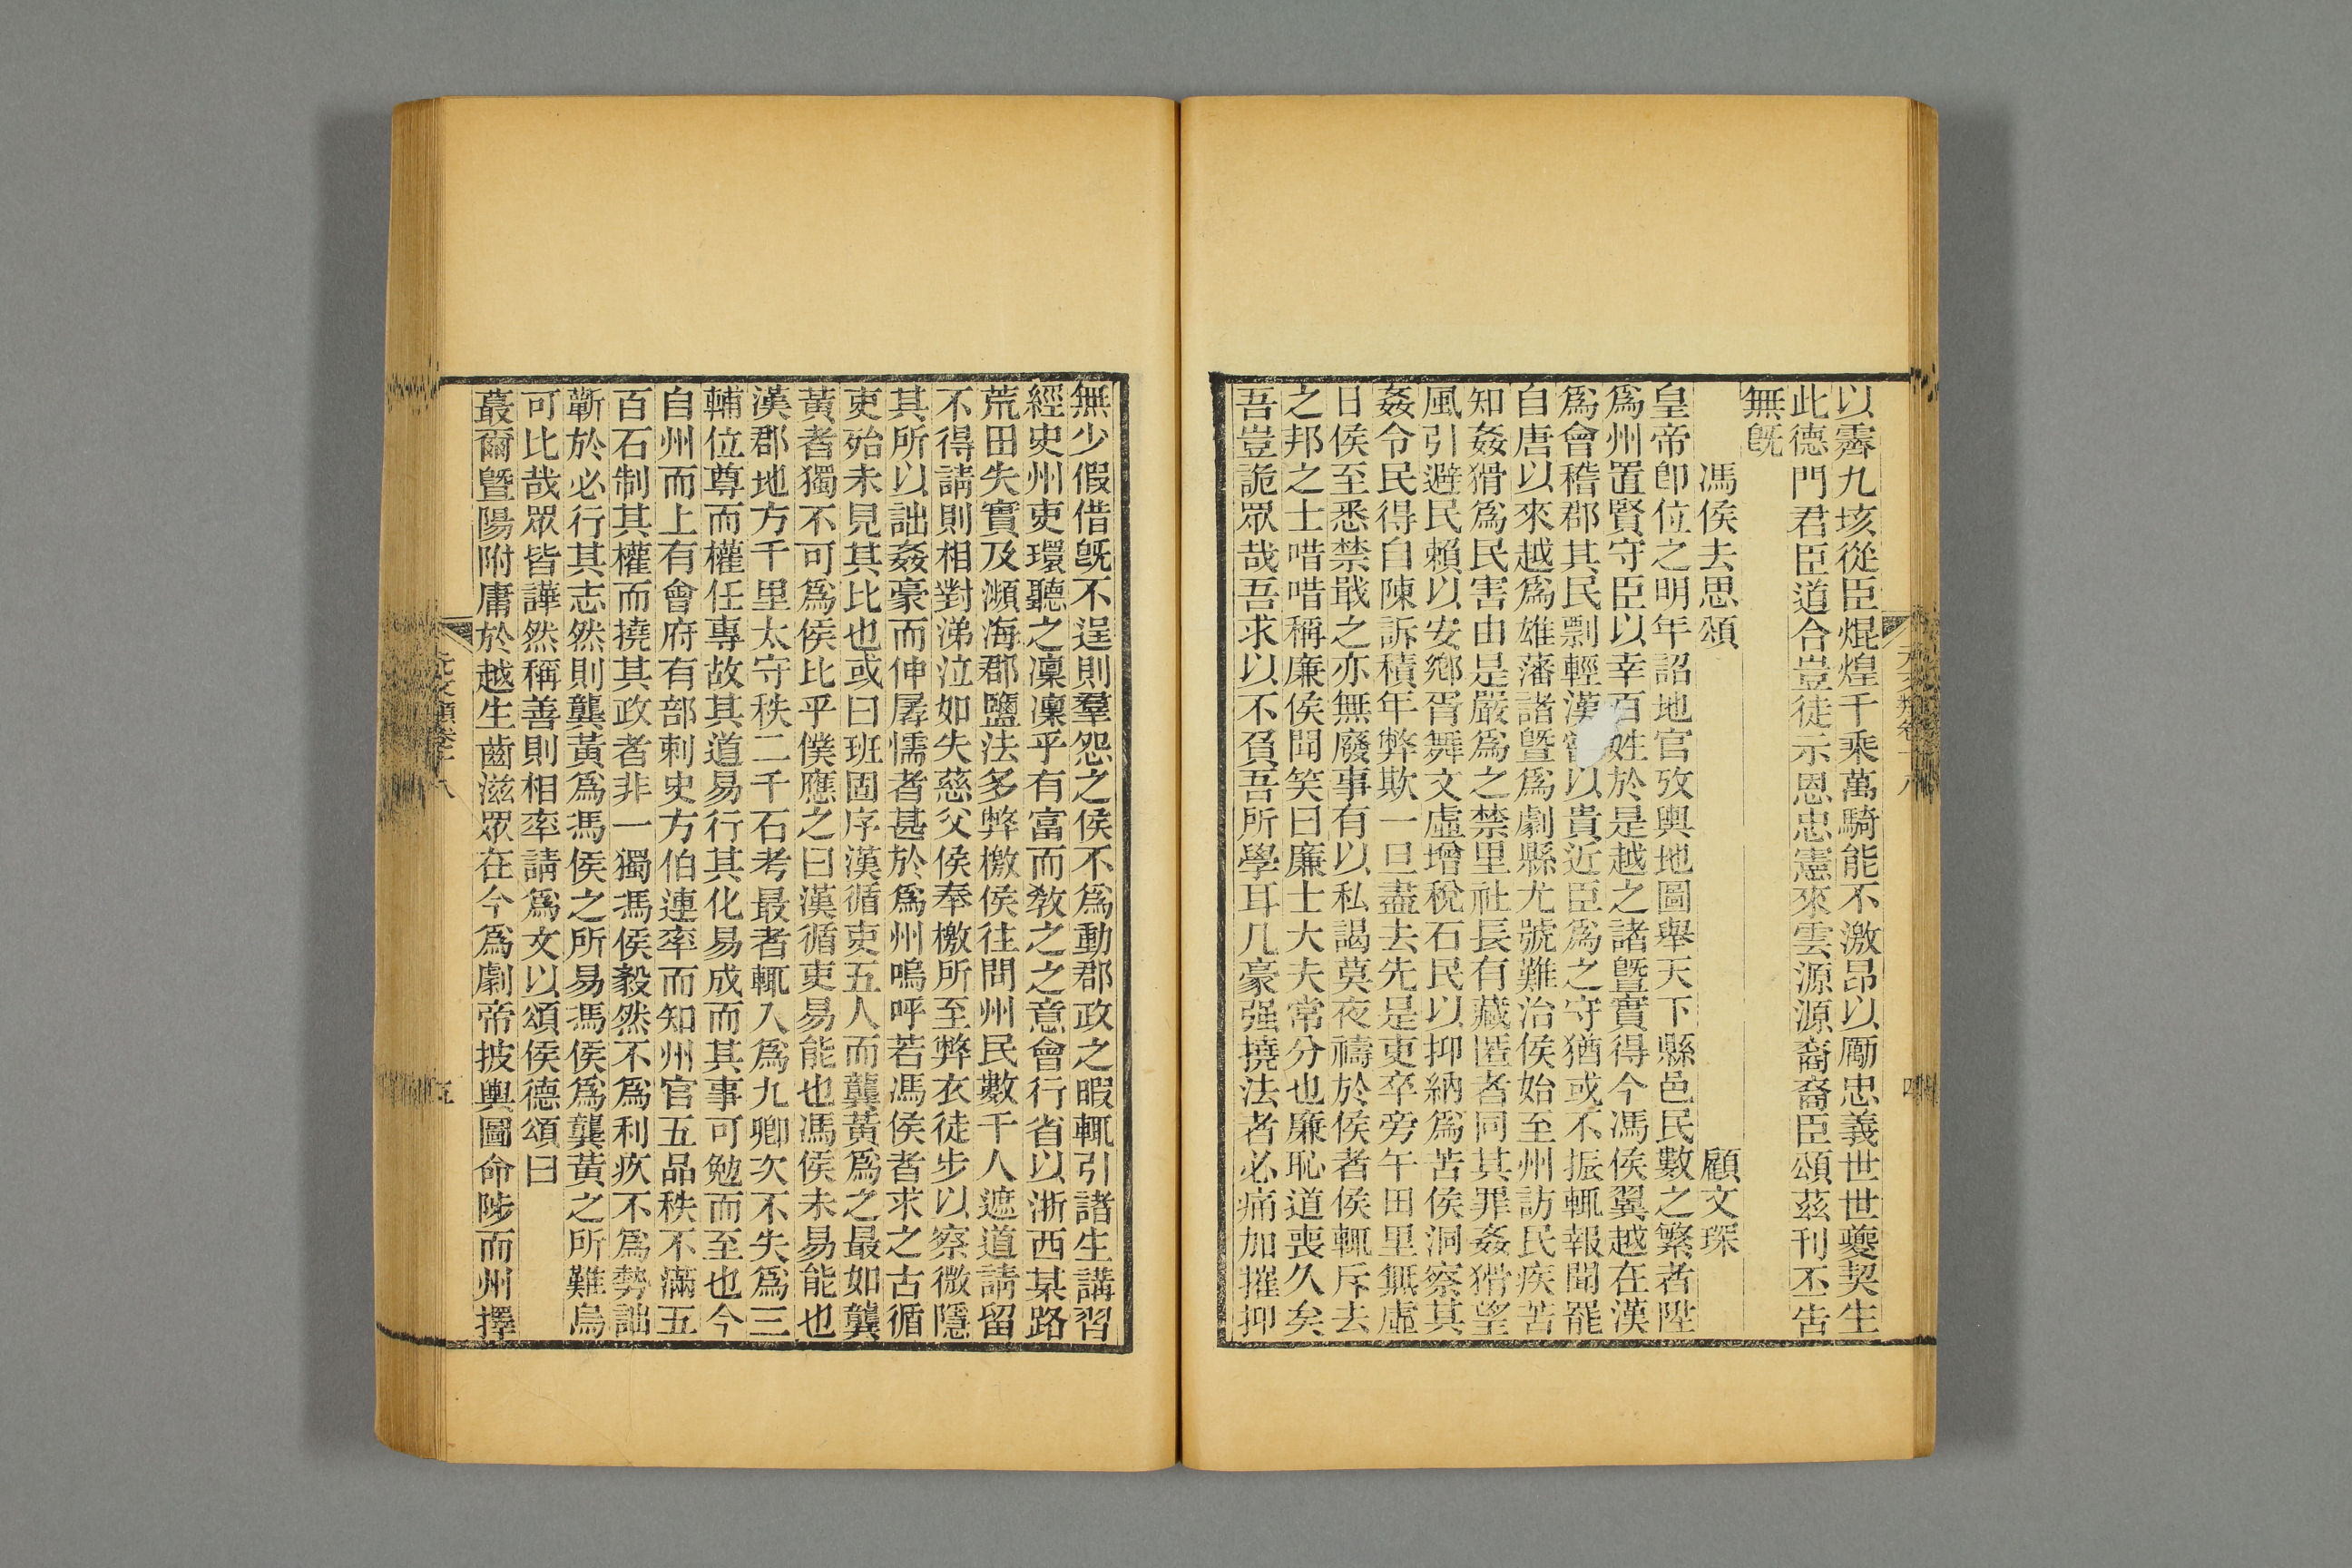 以霽九垓從臣焜煌千乘萬騎能不激昂以勵忠義世世夔契生
此德門君臣道合豈徒示恩忠憲來雲源源裔裔臣頌茲刊丕告
無旣
馮侯去思頌　顧文琛
皇帝卽位之明年詔地官攷輿地圖舉天下縣邑民數之繁者陞
爲州置賢守臣以幸百姓於是越之諸曁實得今馮侯翼越在漢
爲會稽郡其民剽輕漢以貴近臣爲之守猶或不振輒報聞罷
自唐以來越爲雄藩諸曁爲劇縣尤號難治侯始至州訪民疾苦
知姦猾爲民害由是嚴爲之禁里社長有藏匿者同其罪姦猾望
風引避民賴以安鄕胥舞文虛增稅石民以抑納爲苦侯洞察其
姦令民得自陳訴積年弊欺一旦盡去先是吏卒旁午田里無虛
日侯至悉禁戢之亦無廢事有以私謁莫夜禱於侯者侯輒斥去
之邦之士唶唶稱廉侯聞笑曰廉士大夫常分也廉恥道喪久矣
吾豈詭眾哉吾求以不負吾所學耳凡豪强撓法者必痛加摧抑
無少假借旣不逞則羣怨之侯不爲動郡政之暇輒引諸生講習
經史州吏環聽之凜凜乎有富而敎之之意會行省以浙西某路
荒田失實及瀕海郡鹽法多弊檄侯往問州民數千人遮道請留
不得請則相對涕泣如失慈父侯奉檄所至弊衣徒步以察微隱
其所以詘姦豪而伸孱懦者甚於爲州嗚呼若馮侯者求之古循
吏殆未見其比也或曰班固序漢循吏五人而龔黃爲之最如龔
黃者獨不可爲侯比乎僕應之曰漢循吏易能也馮侯未易能也
漢郡地方千里太守秩二千石考最者輒入爲九卿次不失爲三
輔位尊而權任專故其道易行其化易成而其事可勉而至也今
自州而上有會府有部刺史方伯連率而知州官五品秩不滿五
百石制其權而撓其政者非一獨馮侯毅然不爲利疚不爲勢詘
蘄於必行其志然則龔黃爲馮侯之所易馮侯爲龔黃之所難烏
可比哉眾皆譁然稱善則相率請爲文以頌侯德頌曰
蕞爾曁陽附庸於越生齒滋眾在今爲劇帝披輿圖命陟而州擇